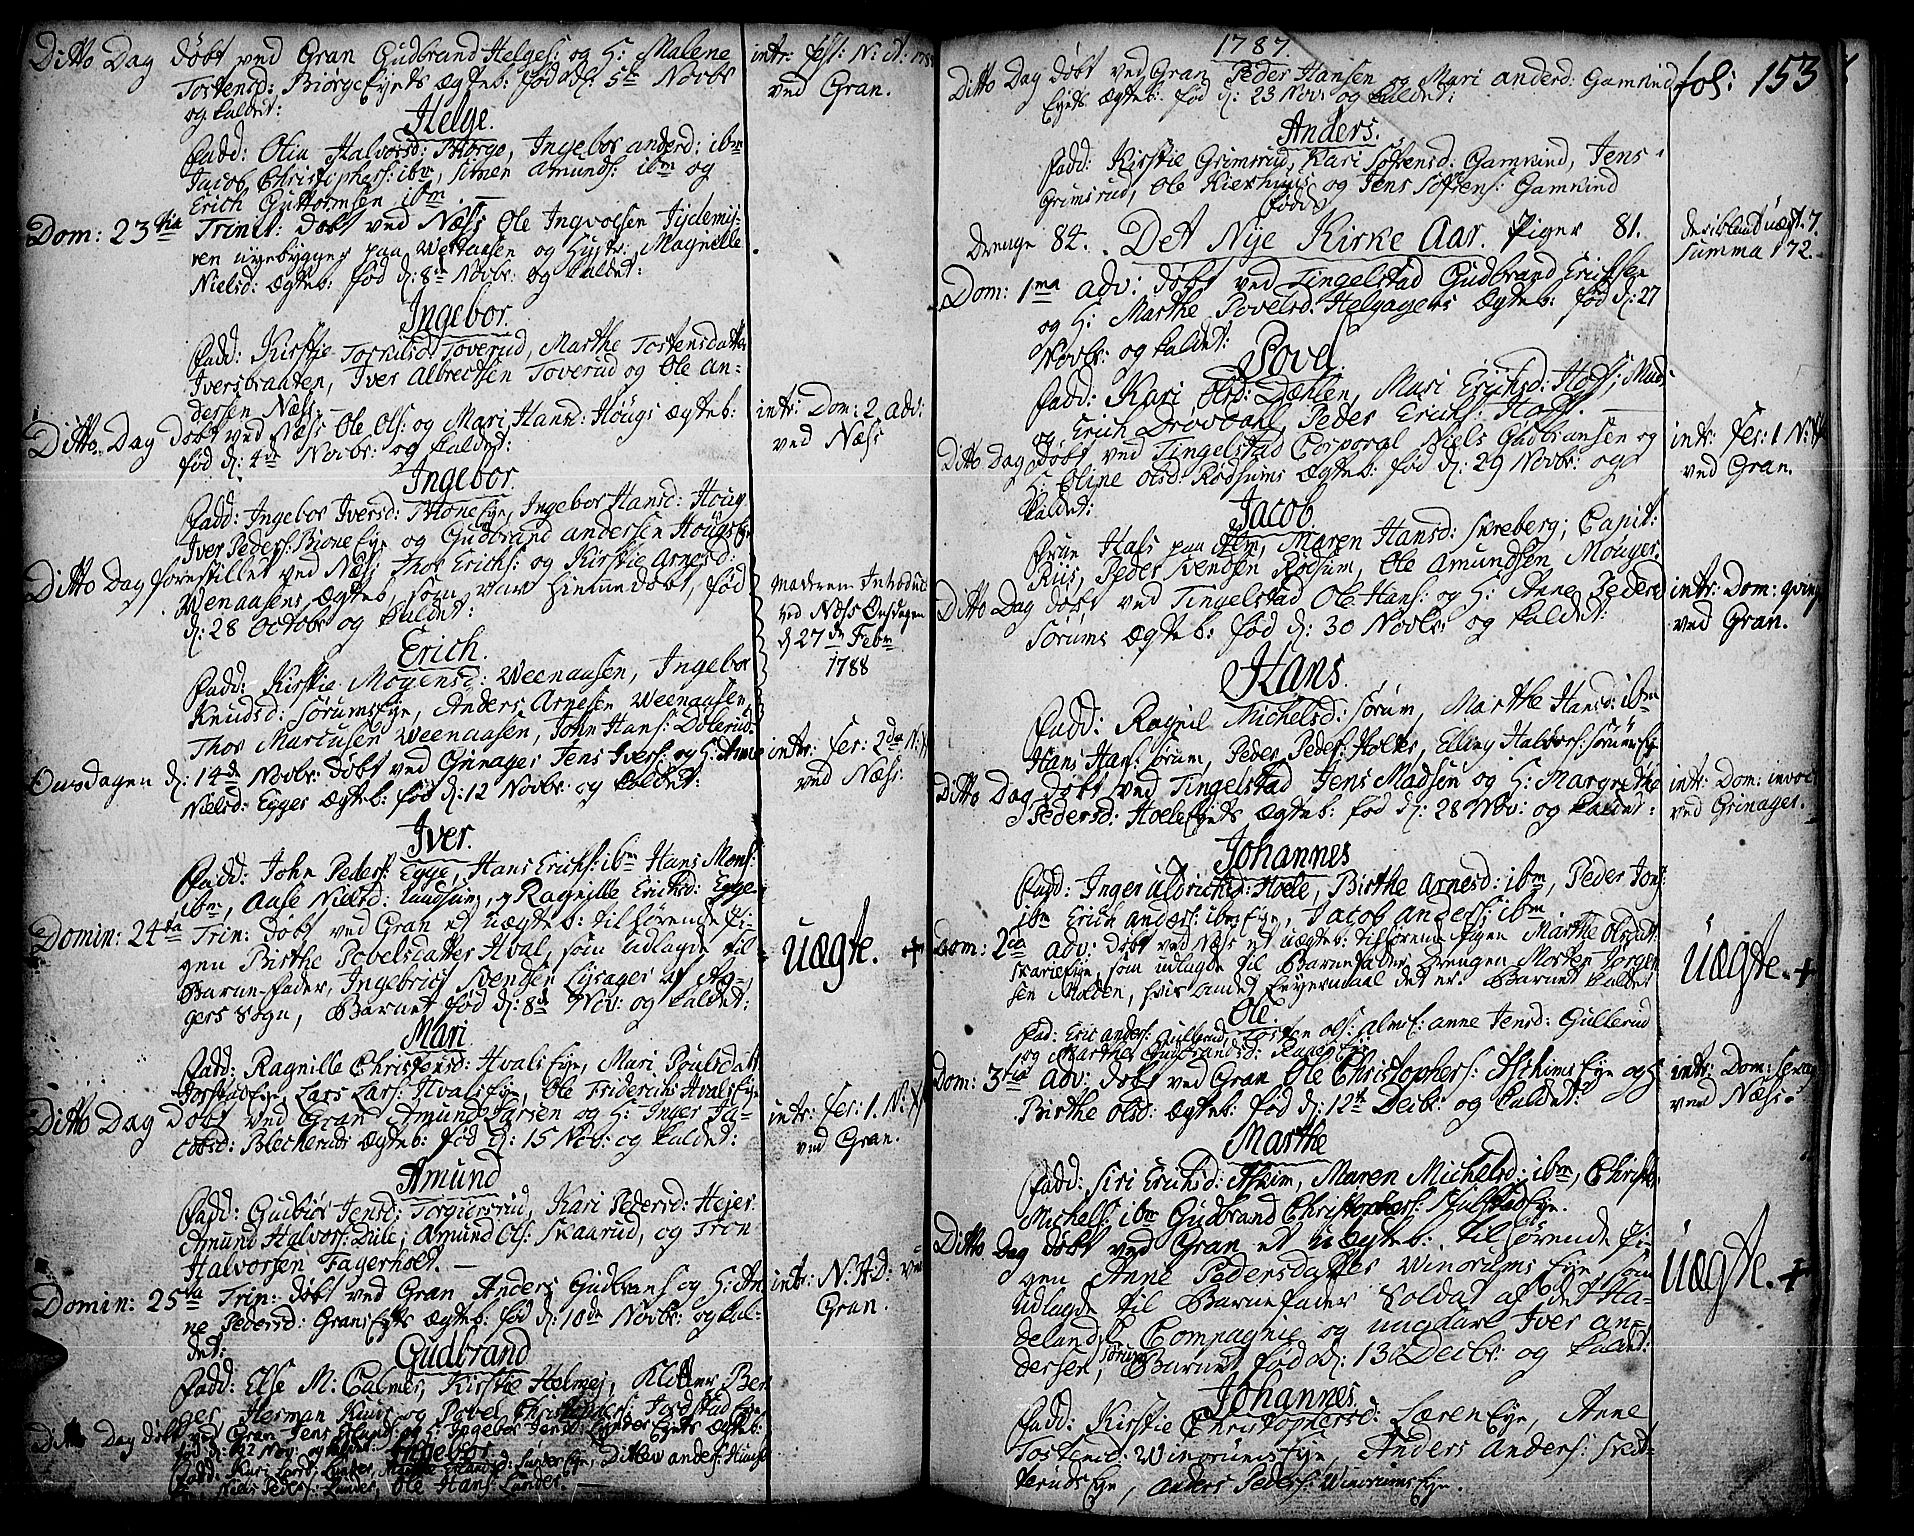 Ditto Dag døbt ved Gran Gudbrand Helges: og H: Malene
Tostensd: Biørge Eyets Ægteb: fød d: 5te Novbr
og kaldet:
Helge.
Fadd: Olia Halvorsd: Biørge, Ingebor anderd: ibm
Jacob Christophers: ibm, Simen Amunds: ibm og
Erich Guttormsen ibm. —
Dom: 23tia Trinit: døbt ved Næss Ole Ingvolsen Tydemy-
ren nyebygger paa Westaasen og Hustr: Magnille
Nielsd: Ægteb: fød d: 8de Novbr: og kaldet:
Ingebor.
Fadd: Kirstie Torkilsd: Toverud, Marthe Tostensdatter
Iversbraaten, Iver Albrechtsen Toverud og Ole an-
dersen Næss —
Ditto Dag døbt ved Næss Ole Ols: og Mari Hansd: Hougs Ægteb:
fød d: 4de Novbr: og kaldet:
Ingebor.
Fadd: Ingebor Iversd: Bione Eye, Ingebor Hansd: Houg
Iver Peders: Bione Eye og Gudbrand andersen Hougs Eye
Ditto Dag forestillet ved Næss Thor Erichs: og Kirstie Arnesd:
Wenaasens Ægteb, som var hiemmedøbt, fød
d: 28 Octobr og kaldet:
Erich.
Fadd: Kirstie Mogensd: Weenaasen, Ingebor
Knudsd: Sørums Eye, Anders Arnesen Weenaasen,
Thor Mariusen Weenaasen, John Hans: Dølerud
Onsdagen d: 14de Novbr: døbt ved Grinager Jens Ivers: og H: Anne
Nielsd: Egges Ægteb: fød d: 12 Novbr: og kaldet:
Iver.
Fadd: John Peders: Egge, Hans Erichs: ibm Hans Mons:
ibm, Aase Nielsd: og Ragnille Erichsd: Egge
Domin: 24ta Trin: døbt ved Gran et uægteb: tilhørende Pi-
gen Birthe Povelsdatter Hval, som udlagde til
Barne-fader, Ingebrigt Svendsen Lysager af Ag-
gers Sogn, Barnet fød d: 8de Nov: og kaldet:
Mari
Fadd: Ragnille Christensd: Hvals Eye, Mari Poulsdatt
Jorstad Eye, Lars Lars: Hvals Eye, Ole Friderichs Hvals Eye
Ditto Dag døbt ved Gran Amund Larsen og H: Inger Ja-
cobsd: Bleckeruds Ægteb: fød d: 15 Nov: og kaldet:
Amund
Fadd: Gudbiør Jensd: Torgiersrud, Kari Pedersd: Hejer
Amund Halvors: Dule, Amund Ols: Skaarud, og Tron
Halvorsen Fagerholt. —
Domin: 25ta Trin: døbt ved Gran Anders Gudbrans og H: An
ne Pedersd: Grans Eyets Ægteb: fød d: 10de Novbr: og kal-
det:
Gudbrand
Fadd: Else M: Calmer, Kirstie Helmej, Klokker Ber
ger, Herman Kuur og Povel Christophers: Jordstad Eye,
Ditto Dag døbt ved Gran Jens Hans: og H: Ingebor Jensd: Lunder Eyets Ægteb:
fød d: 12 Nov: og kaldet: Ingebor
Fadd: Kari Larsd: Lunder, Marthe Hansd: Lunder Eye, Ditlew anders:
Niels Peders: Lunder, Ole Hans: Lunder. —
intr: fest: N: A: 178
ved Gran.
intr: Dom: 2 adv:
ved Næss
Moderen Introduc:
ved Næss Onsdagen
d 27de Febr
1788
intr: fer: 2da N: A
ved Næss.
uægte. +
intr: fer: 1. N: A
ved Gran.
intr: N: A: D: ved
Gran.
1787.
fol: 153
Ditto Dag døbt ved Gran Peder Hansen og Mari anderd: Gamkind
Eyets Ægteb: fød d: 23 Nov: og kaldet:
Anders.
Fadd: Kirstie Grimsrud, Kari Søfrensd: Gamkind, Jens
Grimsrud, Ole Kierhuus og Jens Søfrens: Gamkind
fødde
Drenge 84. Det Nye Kirke Aar. Piger 81.
deriblant uægt: 7.
Summa 172.
Dom: 1ma adv: døbt ved Tingelstad Gudbrand Erichsen
og H: Marthe Povelsd: Helgagers Ægteb: fød d: 27
Novbr: og kaldet:
Povel.
Fadd: Kari Olsd: Dæhlen, Mari Erichsd: Hoff,
og Erich Drovdahl, Peder Erichs: Hoff. —
Ditto Dag døbt ved Tingelstad Corporal Niels Gudbransen og
H: Eline Olsd: Rodsums Ægteb: fød d: 29 Novbr: og
kaldet:
Jacob.
Frue Hals paa Alm, Maren Hansd: Skreberg, Capit:
Riis, Peder Svendsen Rodsum, Ole Amundsen Mouger
Ditto Dag døbt ved Tingelstad Ole Hans: og H: Anne Pedersd
Sørums Ægteb: fød d: 30 Novbr: og kaldet:
Hans.
Fadd: Ragnil Michelsd: Sørum, Marthe Hansd: ibm
Hans Hans: Sørum, Peder Peders: Holter, Elling Halvors: Sørum Eye
Ditto Dag døbt ved Tingelstad Jens Madsen og H: Margrethe
Pedersd: Hoele Eyets Ægteb: fød d: 28 Nov: og kaldet:
Johannes
Fadd: Inger Uldrichsd: Hoele, Birthe Arnesd: ibm, Peder Jons:
ibm Erich anders: ibm Eye, Jacob Anders: ibm
Dom: 2da adv: døbt ved Næss et uægteb: tilhørende Pigen Marthe Olsdat:
Skarie Eye, som udlagde til Barnefader Drengen Morten Jørgen
sen Molden, hvis andet Leyermaal det er: Barnet kaldet
Ole.
Fad: Eric anders: Gullerud, Tosten Ols: Alms: anne Jensd: Gullerud
og Marthe Gudbrandsd:
Dom: 3tia Adv: døbt ved Gran Ole Christophers: Askims Eye og H:
Birthe Olsd: Ægteb: fød d: 12te Decbr: og kaldet:
Marthe
Fadd: Siri Erichsd: Askim, Maren Michelsd: ibm, Christo:
Michels: ibm Gudbrand Christophers: Hulstad Eye.
Ditto Dag døbt ved Gran et uægteb: tilhørende Pi-
gen Anne Pedersdatter Winorums Eye, som
udlagde til Barnefader Soldat af det Ha-
delandske Compagnie og ungkarl Iver an-
dersen Sørum, Barnet fød d: 13de Decbr: og kaldet:
Johannes.
Fadd: Kirstie Christophersd: Læren Eye, Anne
Tostensd: Winorums Eye, Anders Anders: Sked-
keruds Eye, Anders Peders: Winorums Eye.
intr: fer: 1 N: A
ved Gran.
intr: Dom: qvinq
ved Gran.
intr: Dom: invoc
ved Grinager.
Uægte. +
intr: Dom: sexag
ved Næss.
Uægte. +